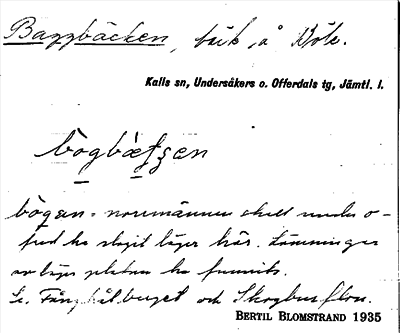 Baggbäcken, bäck, å Köle.
Kalls sn, Undersåkers o. Offerdals tg, Jämtl. l.
bògbæ̀kʂen
bògen = norrmännen skall under o-
fred ha slagit läger här. Lämningar
av lägerplatsen ha funnits.
berget och Skogbusflon.
BERTIL BLOMSTRAND 1935